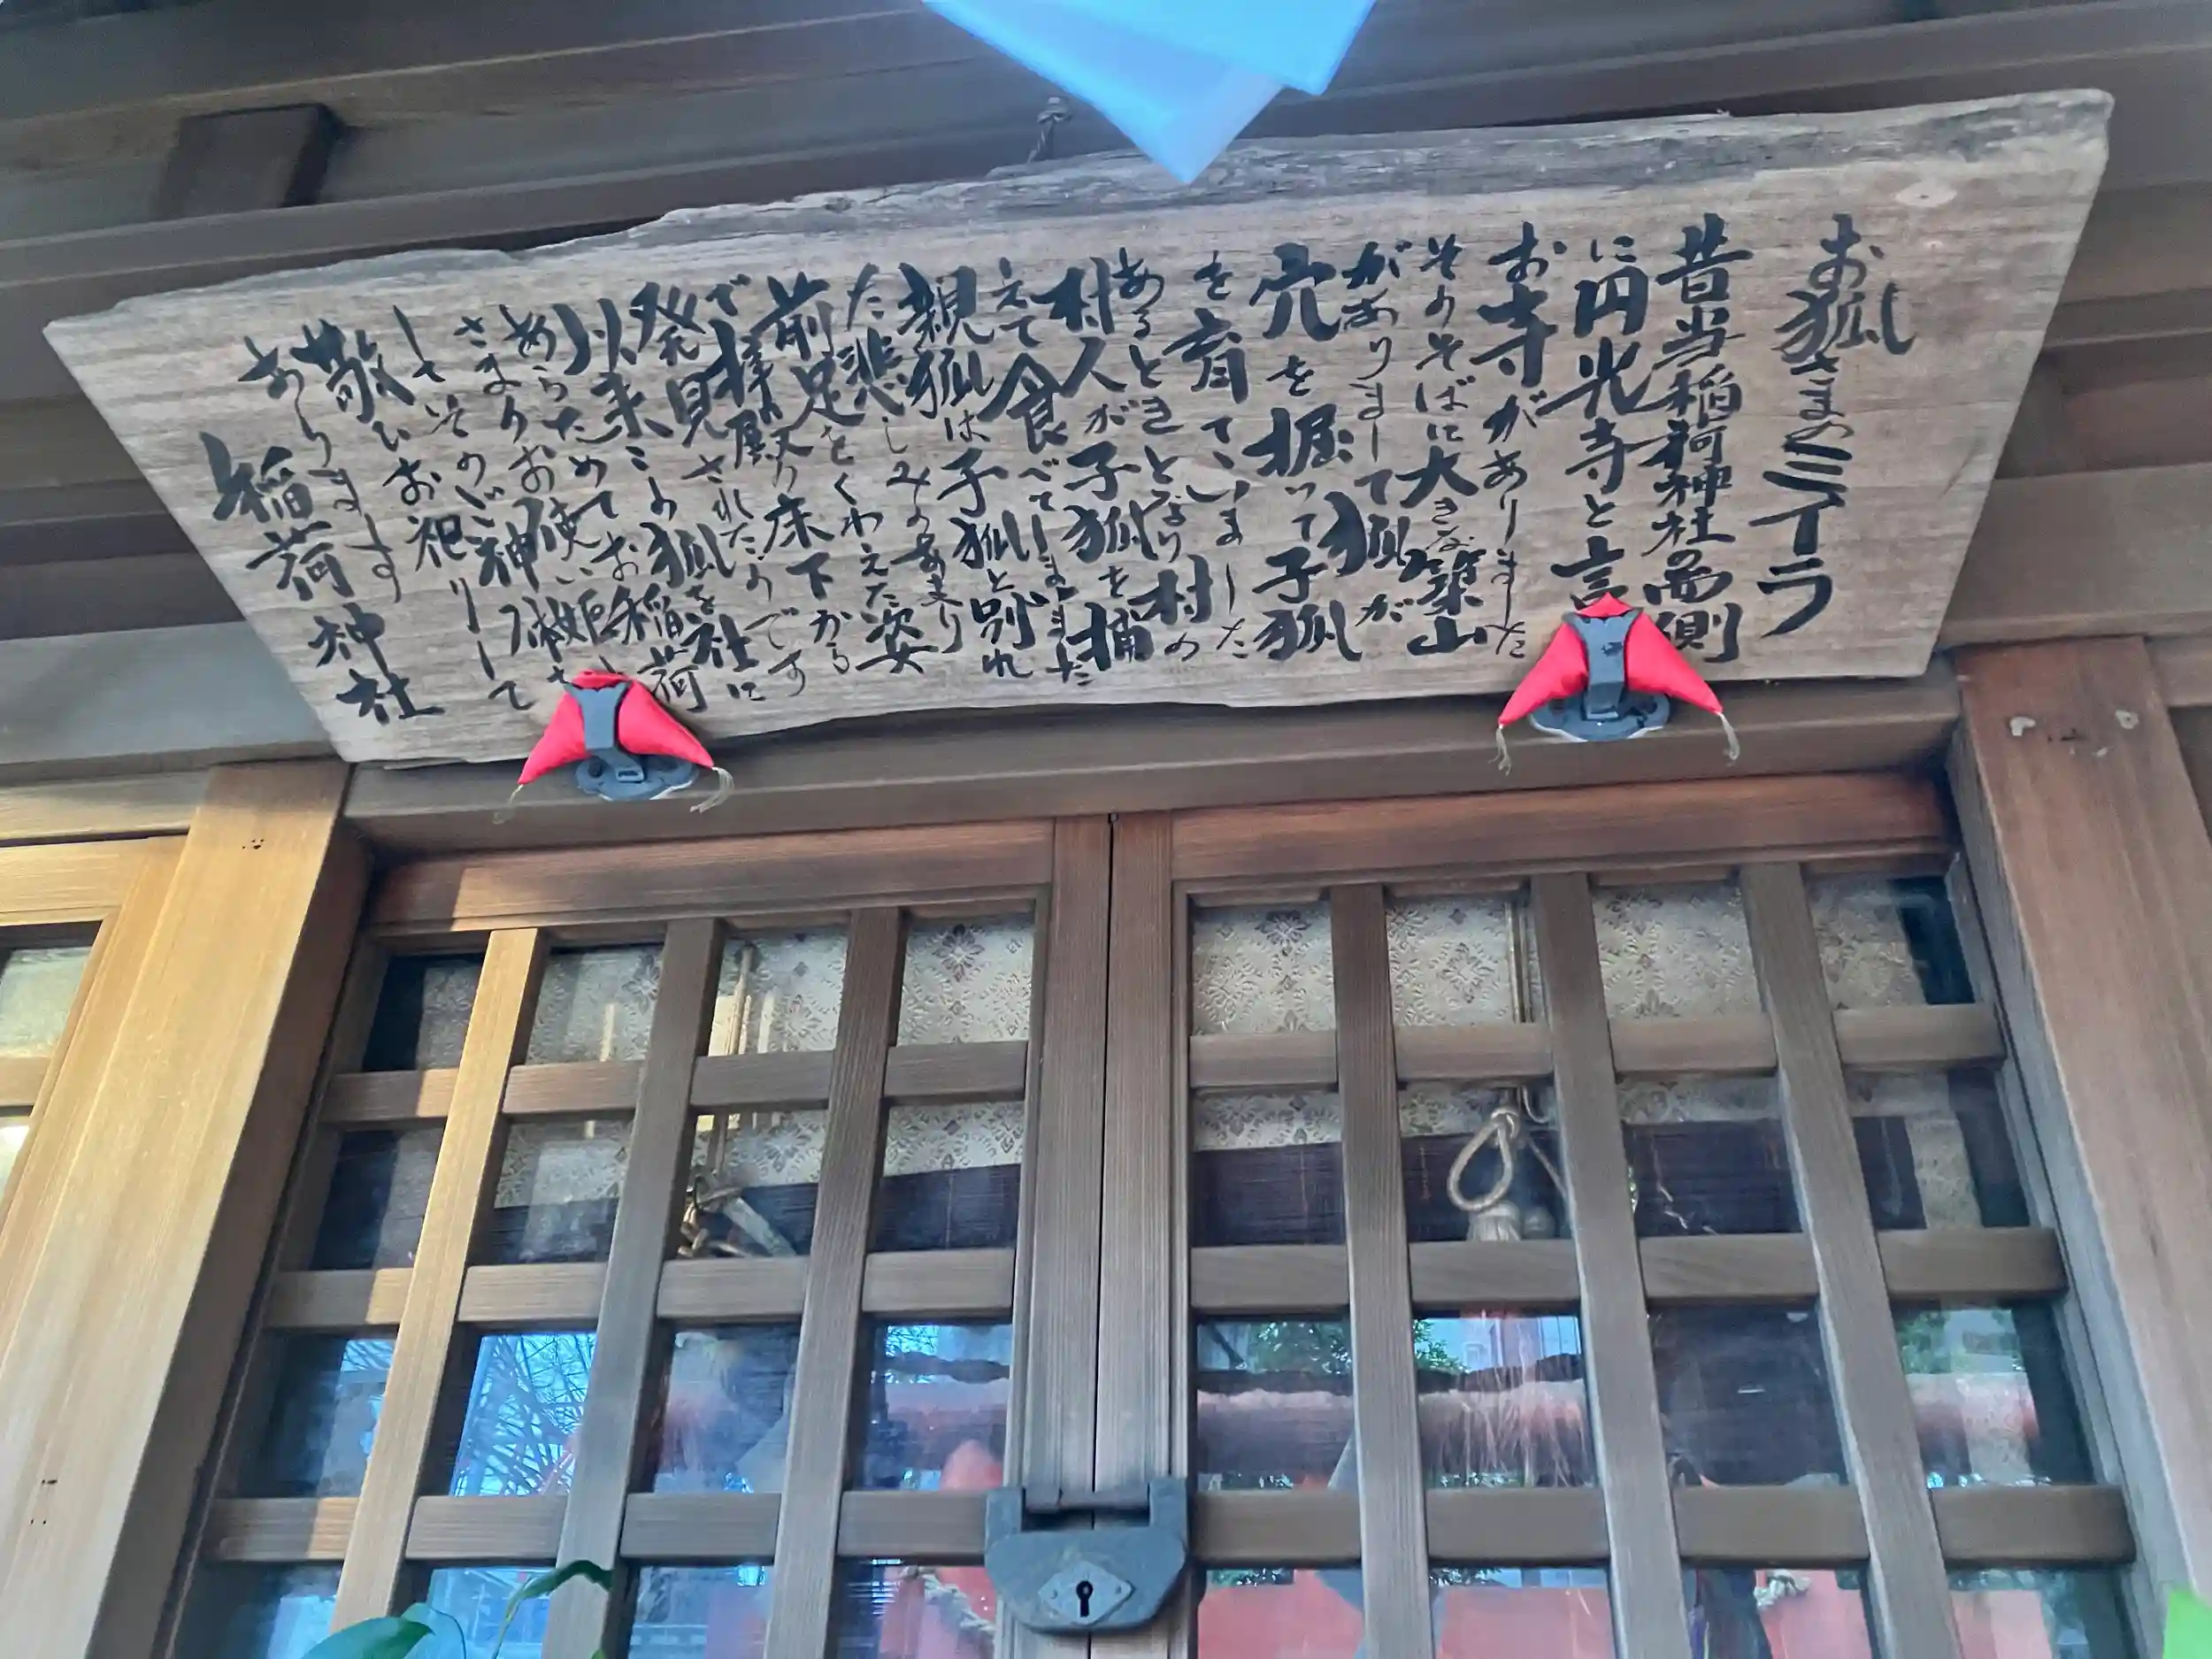 お狐さまのミイラ
昔当稲荷神社の西側
に円光寺と言
お寺がありました
そのそばに大きな築山
がありまして狐が
穴を掘って子狐
を育てていました
あるとき となり村の
村人が子狐を捕
えて食べてしまいました
親狐は子狐と別れ
た悲しみのあまり
前足をくわえた姿
で拝殿の床下から
発見されたのです
以来この狐を社に
あらためてお稲荷
さまのお使い姫
としてその御神
敬いお祀りして
あります
稲荷神社